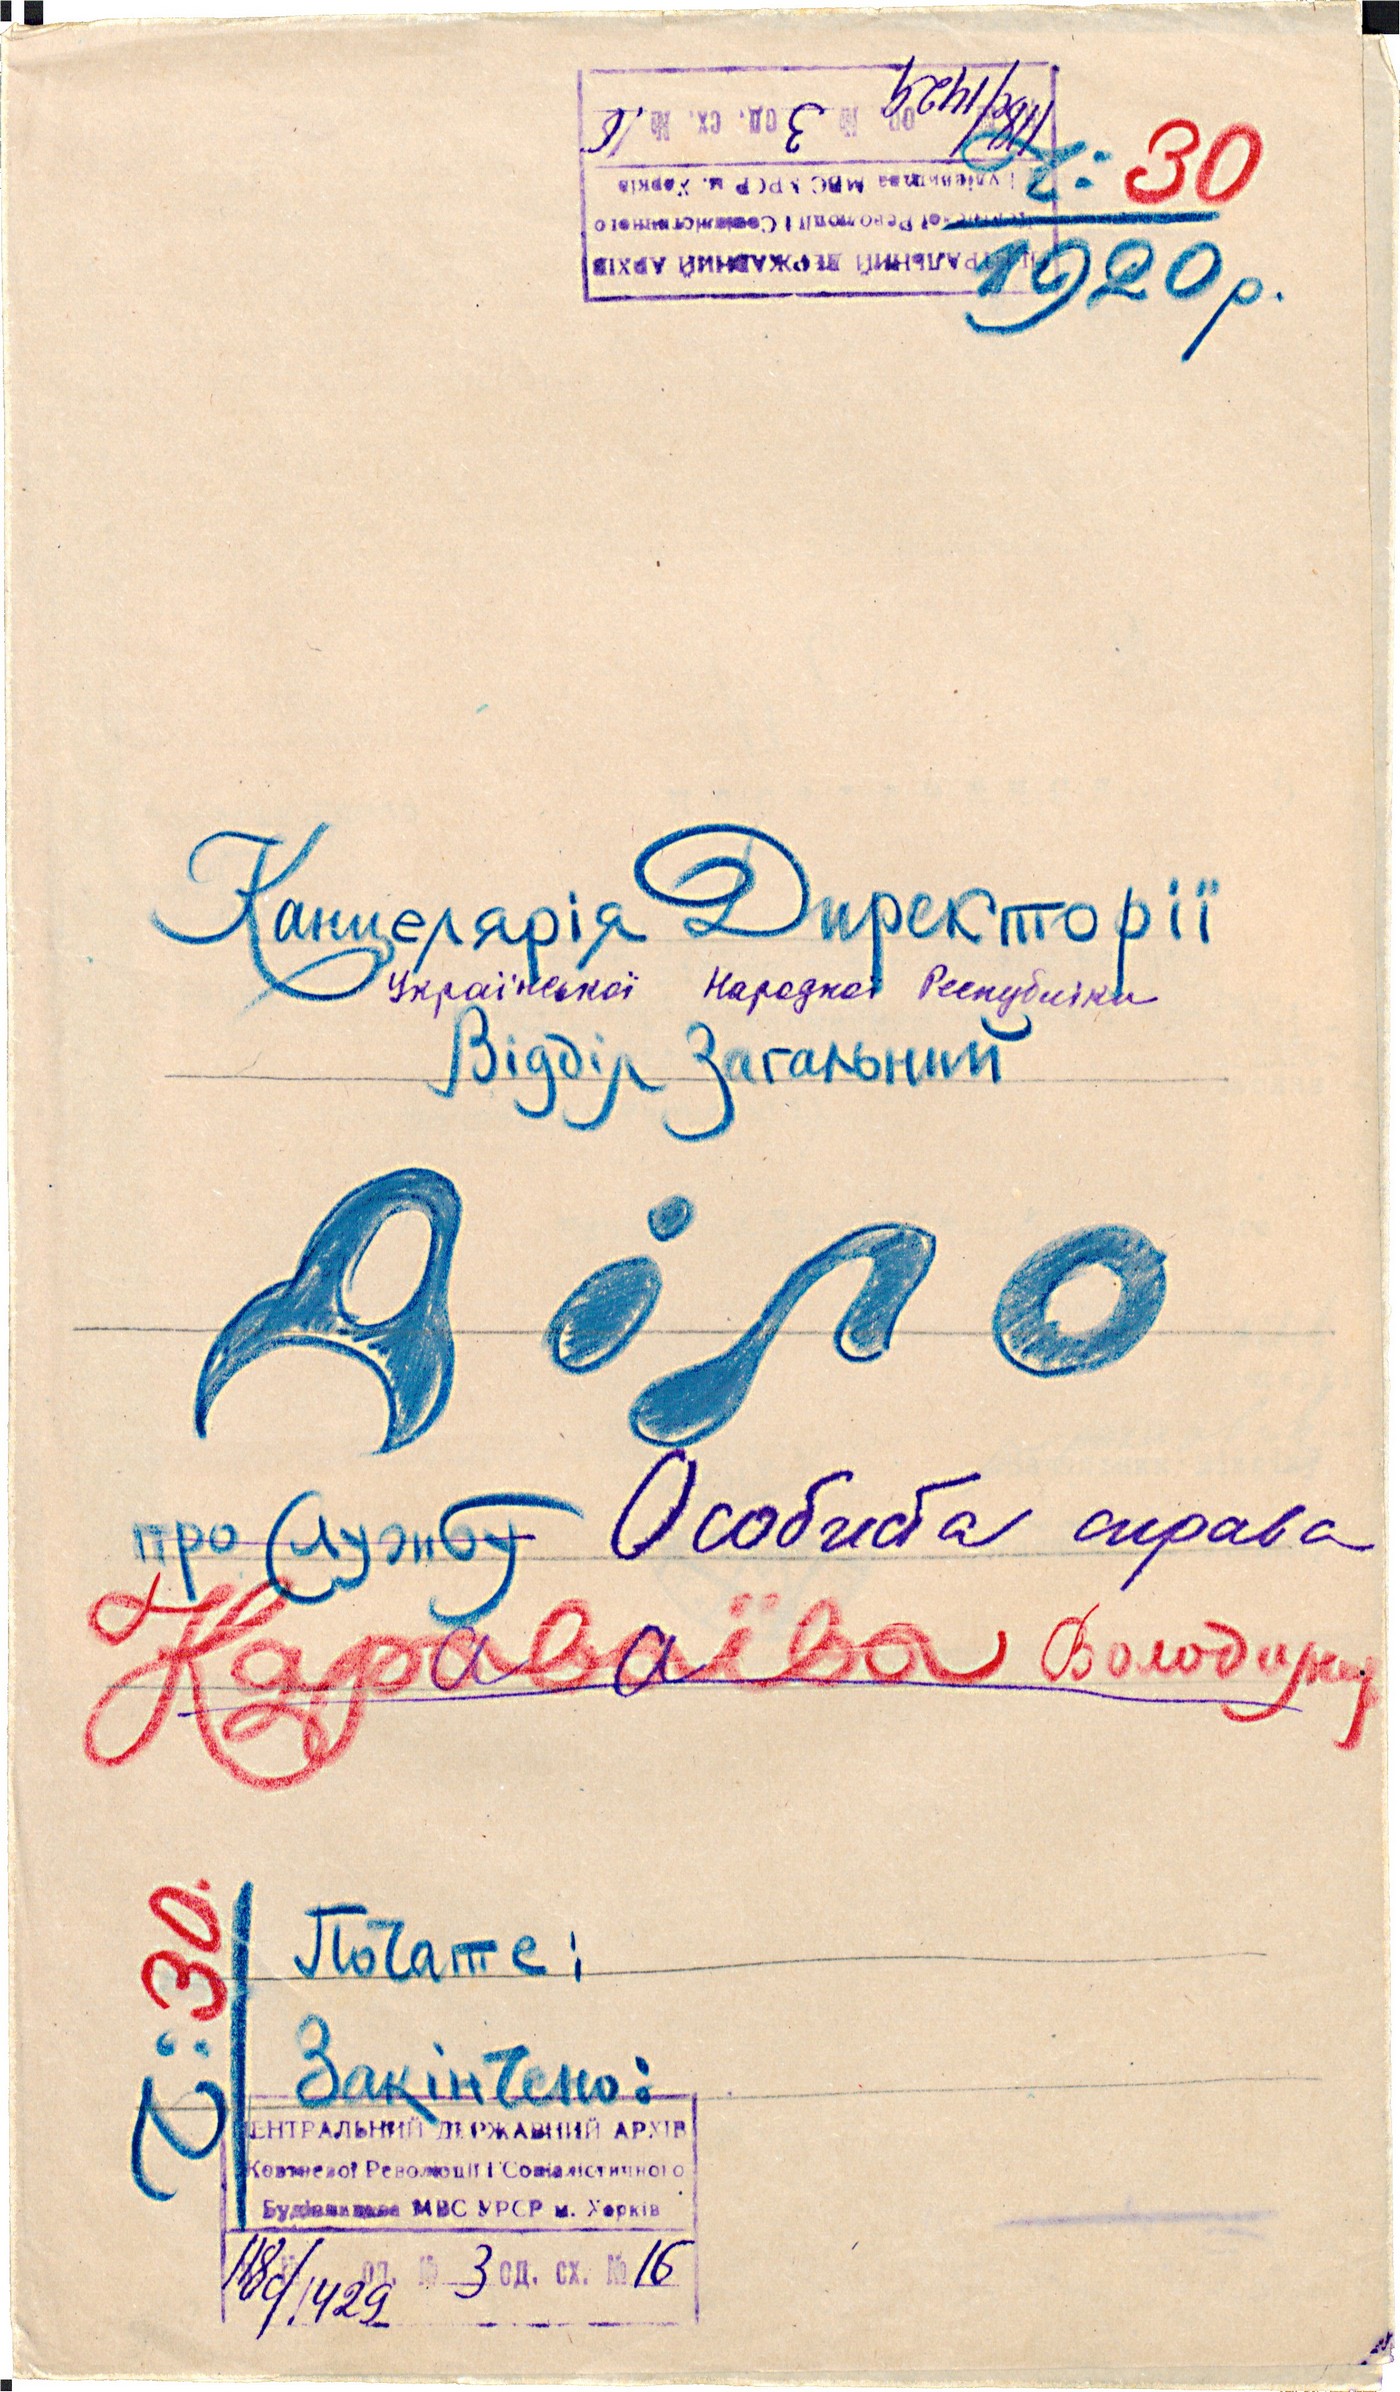 Ч: 30
1920 р.
ЦЕНТРАЛЬНИЙ ДЕРЖАВНИЙ АРХІВ
Жовтневої Революції і Соціалістичного
Будівництва МВС УРСР м. Харків
оп. № 3 од. сх. № 16
1429
Канцелярія Директорії
Української Народної Республіки
Відділ Загальний
Діло
про службу Особиста справа
Караваїва Володимир
Ч: 30.
Почате:
Закінчено:
ЦЕНТРАЛЬНИЙ ДЕРЖАВНИЙ АРХІВ
Жовтневої Революції і Соціалістичного
Будівництва МВС УРСР м. Харків
оп. № 3 од. сх. № 16
1429